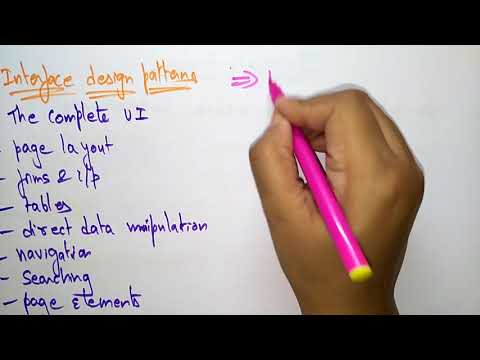 Interface design patterns ⇒
The complete UI
- page layout
- forms & i/p
- tables
- direct data manipulation
- navigation
- Searching
- page Elements